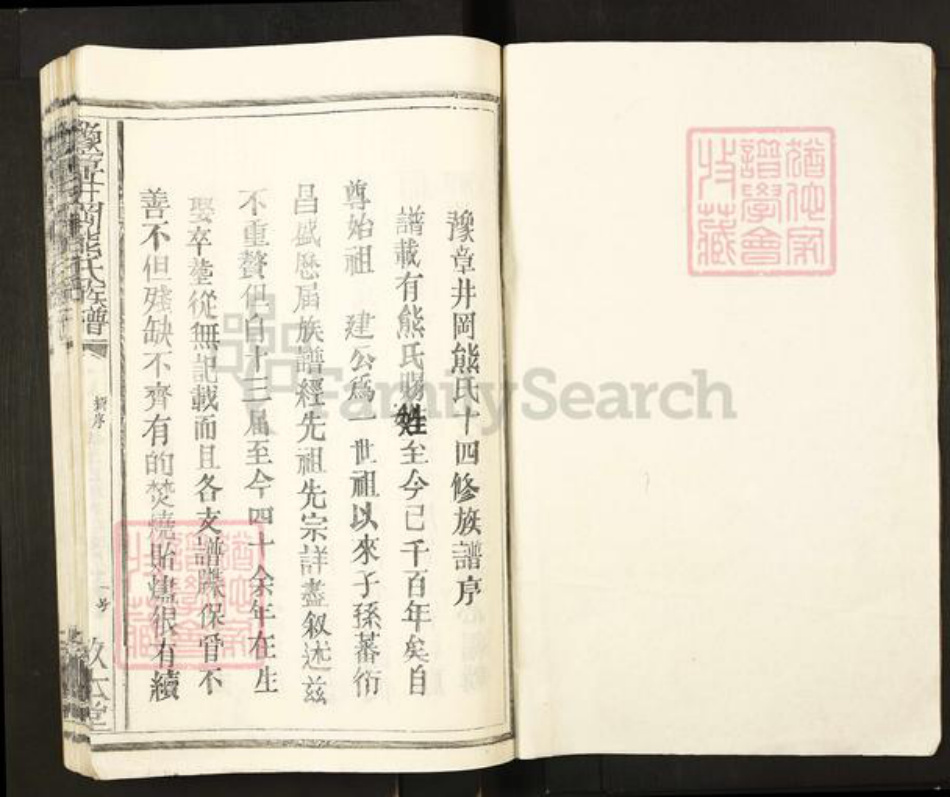 豫章井岡熊氏十四修族譜序
譜載有熊氏賜姓至今已千百年矣自
尊始祖 建公爲一世祖以來子孫蕃衍
昌盛歷屆族譜經先祖先宗詳盡叙述茲
不重贅但自十三屆至今四十余年在生
娶卒塟從無記載而且各支譜牒保管不
善不但殘缺不齊有的焚燒貽燼很有續
豫章井岡熊氏族譜
新序
一号
猶他家譜學會收藏
猶他家譜學會收藏
FamilySearch